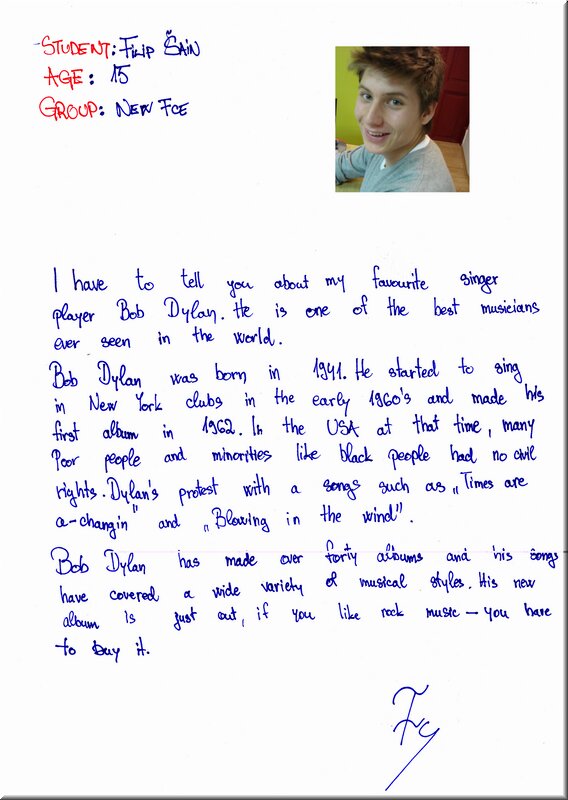 STUDENT: FILIP ŠAIN
AGE: 15
GROUP: NEW FCE
I have to tell you about my favourite singer
player Bob Dylan. He is one of the best musicians
ever seen in the world.
Bob Dylan was born in 1941. He started to sing
in New York clubs in the early 1960's and made his
first album in 1962. In the USA at that time, many
Poor people and minorities like black people had no civil
rights. Dylan's protest with a songs such as „Times are
a-changin" and „Blowing in the wind".
Bob Dylan has made over forty albums and his songs
have covered a wide variety of musical styles. His new
album is just out, if you like rock music – you have
to buy it.